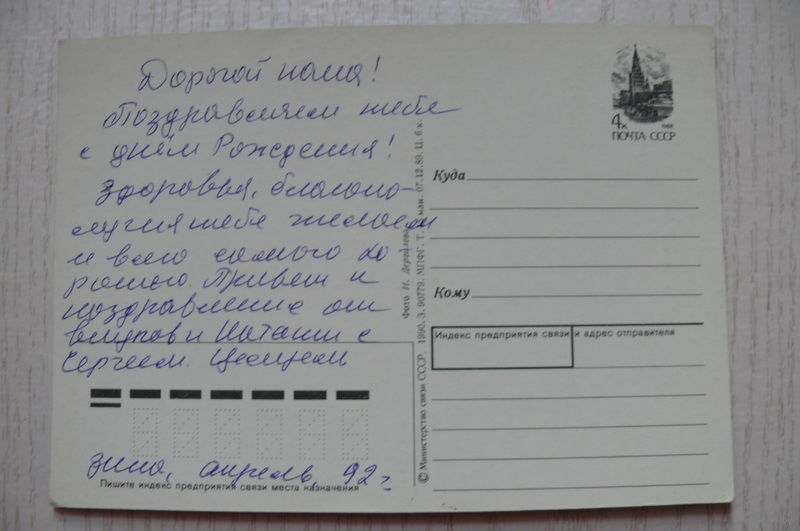 Дорогой папа!
Поздравляем тебя
с днём Рождения!
Здоровья, благопо-
лучия тебе желаем
и всего самого хо
рошего. Привет и
поздравление от
внуков и Натальи с
Сергеем. Целуем
Зина, апрель, 92 г.
Пишите индекс предприятия связи места назначения
© Министерство связи СССР. 1990. З. 90779. МПФГ. Т. мли. 07.12.89. Ц. 6 к.
Фото И.
4к 1988
ПОЧТА СССР
Куда
Кому
Индекс предприятия связи и адрес отправителя